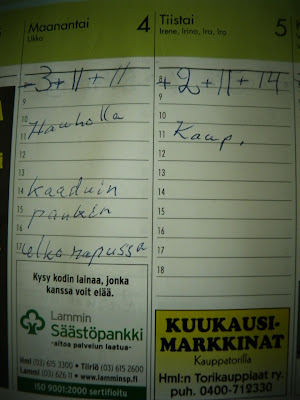 Maanantai 4
Ukko
-3+11+11
8
9
10
Hauholla
11
12
13
14
kaaduin
15
pankin
16
17 ulkorapussa
Kysy kodin lainaa, jonka
kanssa voit elää.
Lammin
Säästöpankki
-aitoa palvelun laatua-
Hml (03) 615 3300 • Tiiriö (03) 615 2600
Lammi (03) 626 11 • www.lamminsp.fi
ISO 9001:2000 sertifioitu
Tiistai 5
Irene, Irina, Ira, Iro
+2+11+14
8
9
10
11 Kaup.
12
13
14
15
16
17
18
KUUKAUSI-
MARKKINAT
Kauppatorilla
Hml:n Torikauppiaat ry.
puh. 0400-712330